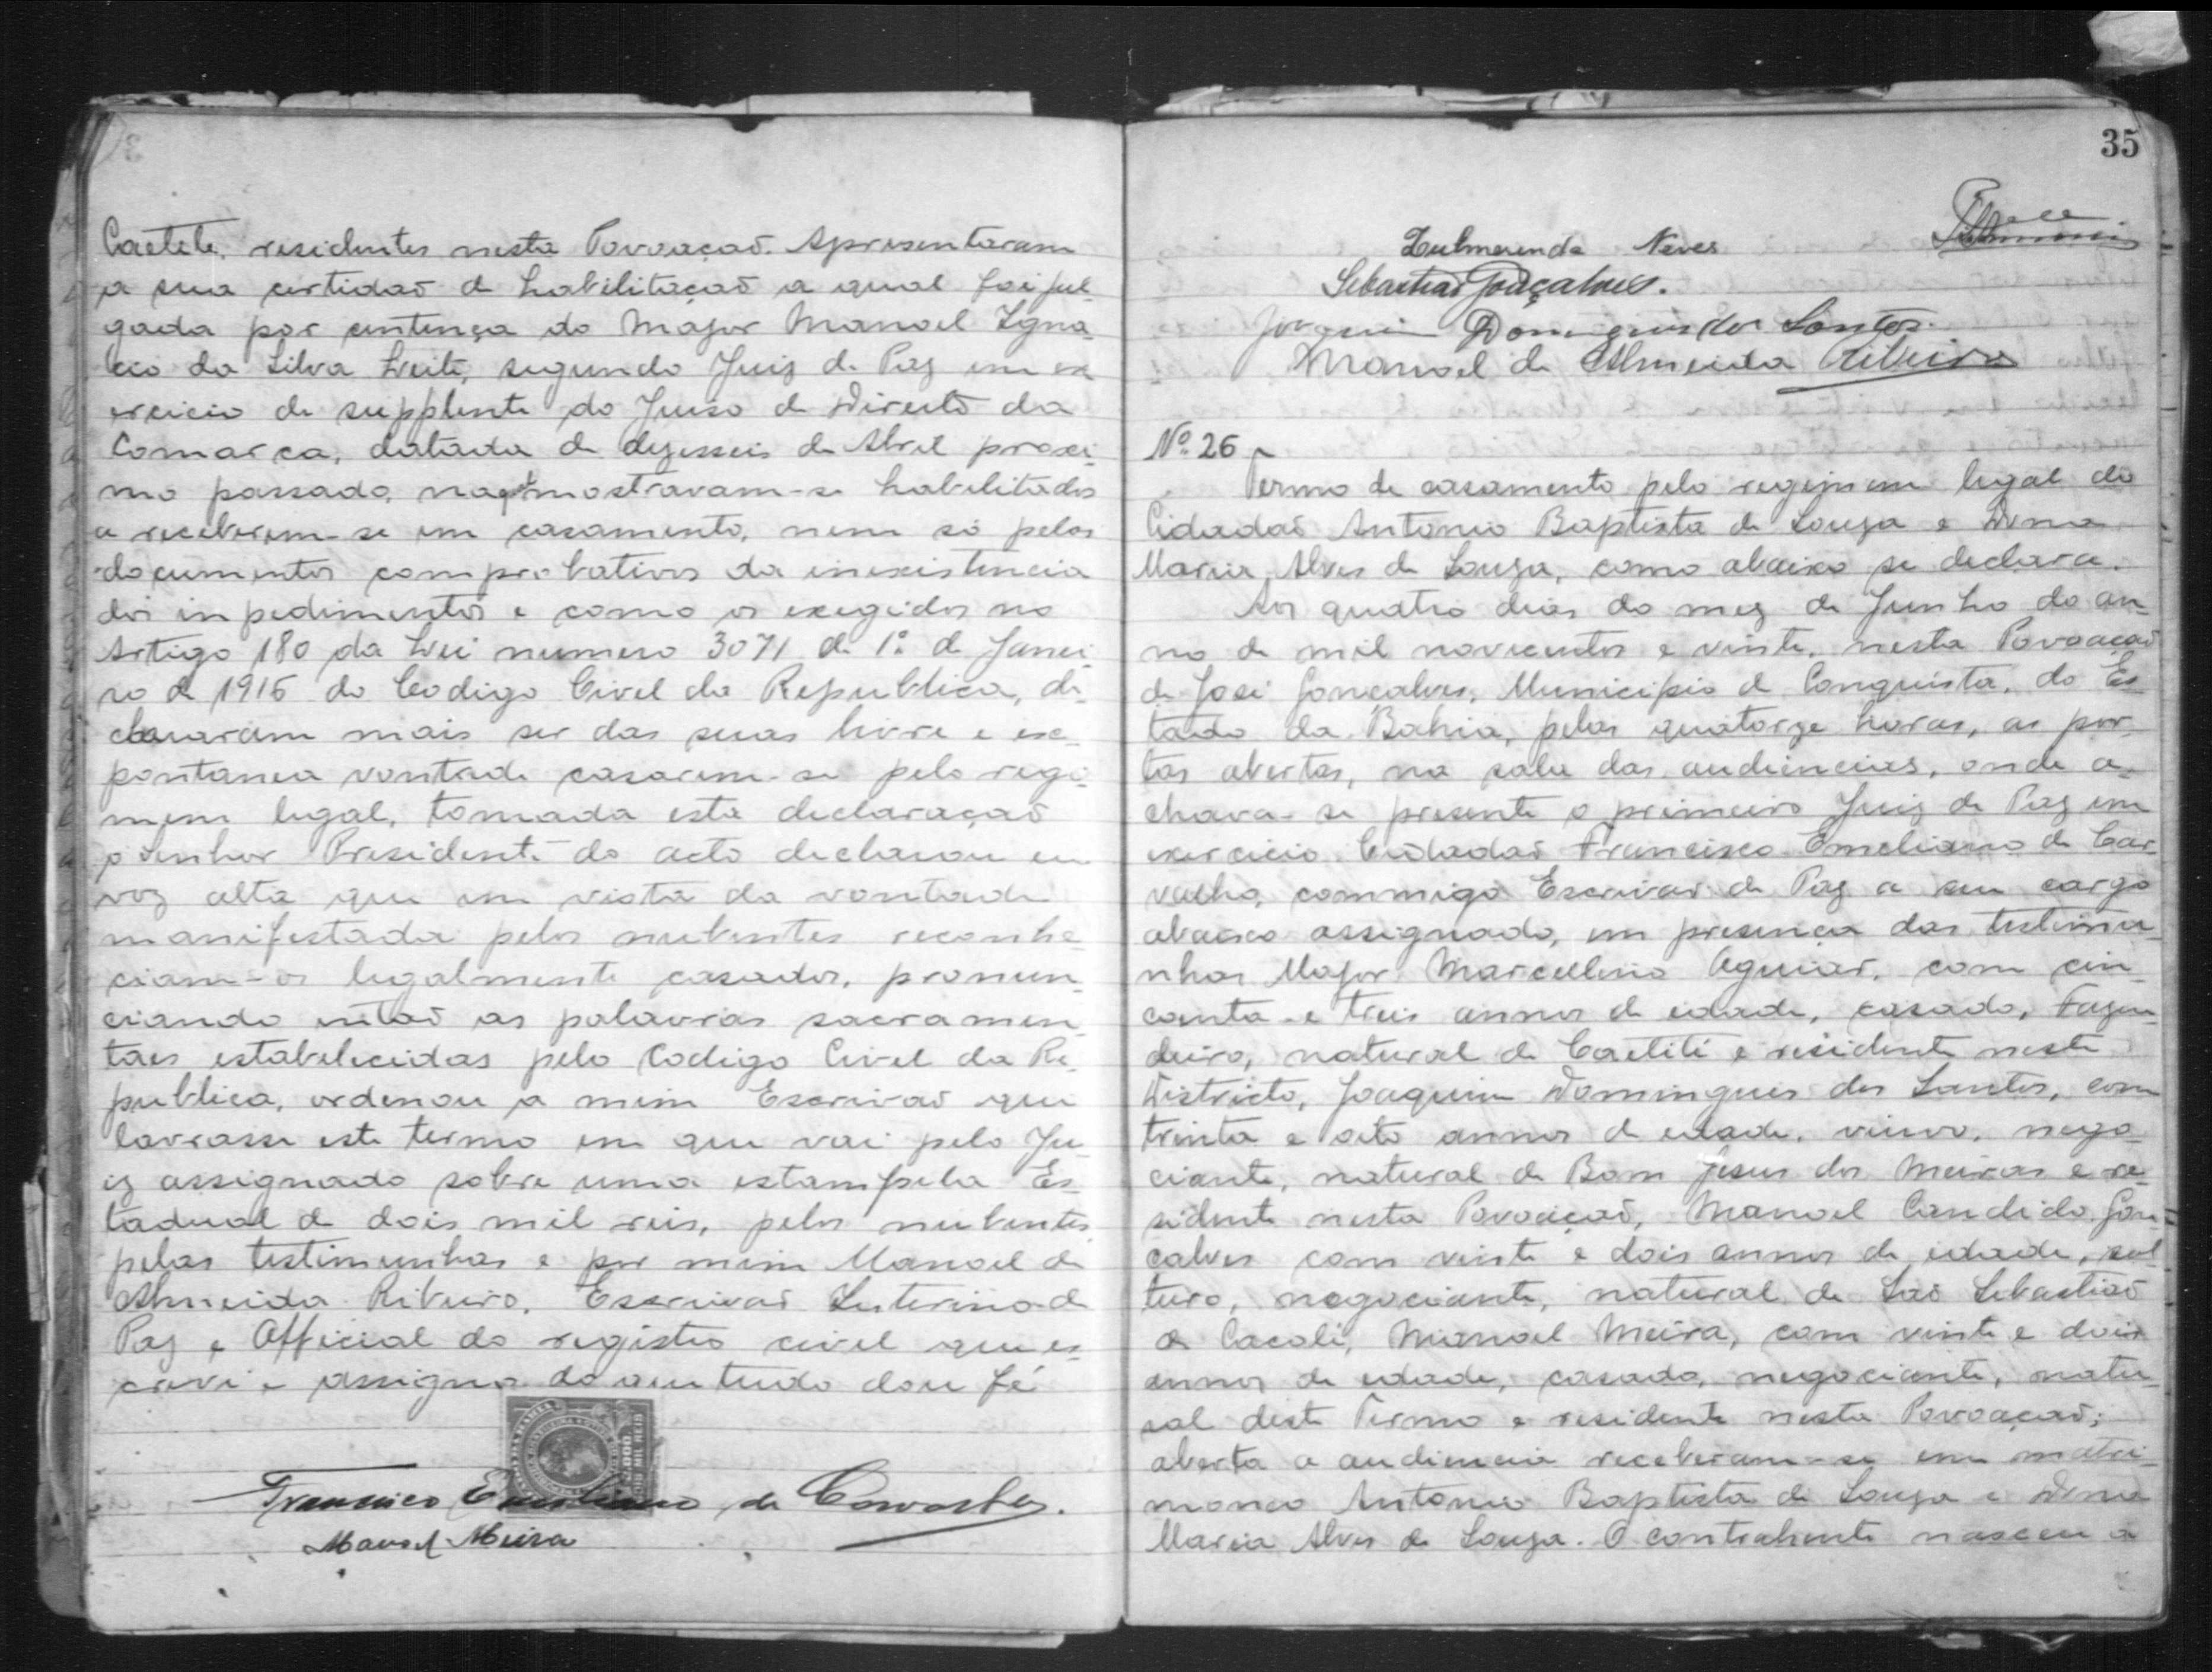 Caetete, residentes nesta Povoaçaõ. Apresentaram
a sua certidaõ de habilitaçaõ a qual foi jul-
gada por centença do Major Manoel Igna-
cio da Silva Leite, segundo Juiz de Paz em ex
ercicio de supplente do Juiso de Direito da
Comarca, datada de dezesseis de Abril proxi-
mo passado, mostravam-se habilitados
a receberem-se em casamento, nem só pelos
documentos comprobativos da inexistencia
dos inpedimentos e como os exegidos no
Artigo 180 da Lei numero 3071 de 1º de Janei-
ro de 1916 do Codigo Civel da Republica, de-
clararam mais ser das suas livre e es-
pontanea vontade casarem-se pelo regi-
mem legal, tomada esta declaraçaõ
o senhor Presidente do acto declarou em
voz alta que em vista da vontade
manifestada pelos nubentes reconhe-
ciam-os legalmente casados, pronun-
ciando entaõ as palavras sacramen-
taes estabelecidas pelo Codigo Civel da Re-
publica, ordenou a mim Escrivaõ que
lavrasse este termo em que vai pelo Ju-
iz assignado sobre uma estampilha Es-
tadual de dois mil reis, pelos nubentes,
pelas testimunhas e por mim Manoel de
Almeida Ribeiro, Escrivaõ Interino de
Paz e Official do registro civel que es-
crevi e assigno do que tudo dou fé
2.000
Francisco Emeliano de Carvalho.
Manoel Meira
35
Zulmerenda Neves
Sebastiaõ Gonçalves.
Joaquim Domingues dos Santos
Manoel de Almeida Ribeiro
Nº 26
Termo de casamento pelo regimem legal do
Cidadaõ Antonio Baptista de Souza e Dona
Maria Alves de Souza, como abaixo se declara.
Aos quatro dias do mez de Junho do an-
no de mil novecentos e vinte, nesta Povoaçaõ
de José Gonçalves, Municipio de Conquista, do Es-
tado da Bahia, pelas quatorze horas, as por-
tas abertas, na sala das audiencias, onde a-
chava-se presente o primeiro Juiz de Paz em
exercicio Cidadaõ Francisco Emeliano de Car-
valho, commigo Escrivaõ de Paz a seu cargo
abaixo assignado, em presença das testimu-
nhas Major Marcellino Aguiar, com cin-
coenta e treis annos de edade, casado, Fazen-
deiro, natural de Caetité e residente neste
Districto, Joaquim Domingues dos Santos, com
trinta e oito annos de edade, viuvo, nego-
ciante, natural de Bom Jesus dos Meiras e re-
sidente nesta Povoaçaõ, Manoel Candido Gon-
calves com vinte e dois annos de edade, sol-
teiro, negociante, natural de Saõ Sebastiaõ
de Cacolé, Manoel Meira, com vinte e dois
annos de edade, casado, negociante, natu-
ral deste Termo e residente nesta Povoaçaõ;
aberta a audiencia receberam-se em matri-
monio Antonio Baptista de Souza e Dona
Maria Alves de Souza. O contrahente nasceu a